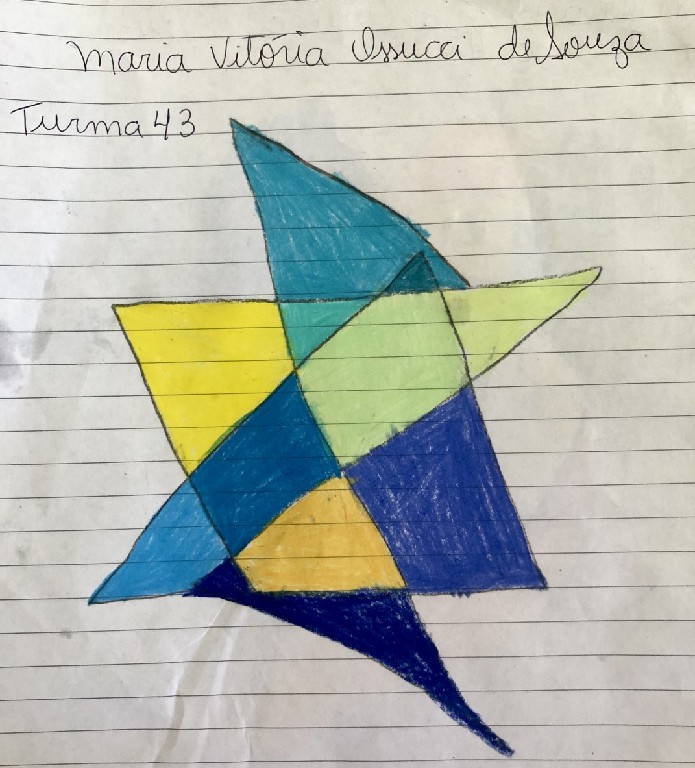 Maria Vitória Ossucci de Souza
Turma 43